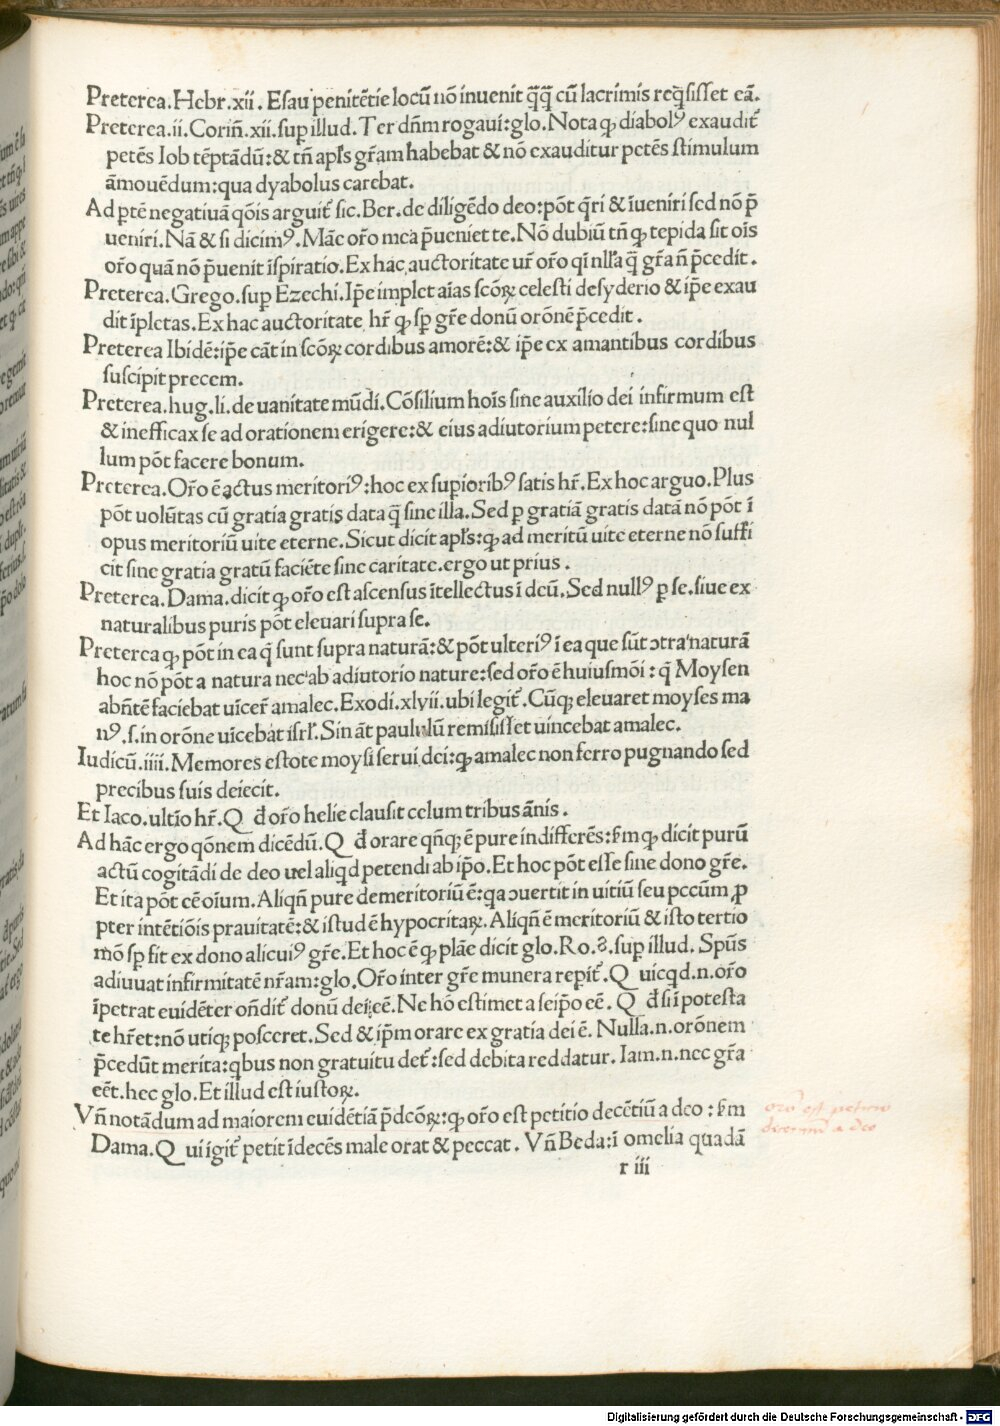 Preterea.Hebr.xii. Esau penitētie locū nō inuenit q̄q̄ cū lacrimis reqsisset eā.
Preterea.ii.Coriñ.xii.sup illud. Ter dñm rogaui:glo.Nota ꝙ diabolꝰ exaudit᷑
petēs Iob tēptādū:& tñ apl's gr̄am habebat & nō exauditur petēs stimulum
āmouēdum:qua dyabolus carebat.
Ad ptē negatiuā qōis arguit᷑ sic.Ber.de diligēdo deo:pōt q̄ri & īueniri sed nō p̄
ueniri. Nā & si dicimꝰ. Māe or̄o mea p̄ueniet te. Nō dubiū tñ ꝙ tepida sit oīs
or̄o quā nō p̄uenit īspiratio.Ex hac auctoritate ur̄ or̄o qī nll'a q̄ gr̄a ñ p̄cedit.
Preterea.Grego.sup Ezechi.Ip̄e implet aīas scōꝝ celesti desyderio & ip̄e exau
dit īpletas.Ex hac auctoritate hr̄ ꝙ sp̱ gr̄e donū orōnē p̄cedit.
Preterea Ibidē:ip̄e cāt in scōꝝ cordibus amorē:& ip̄e ex amantibus cordibus
suscipit precem.
Preterea.hug.li.de uanitate mūdi.Cōsilium hoīs sine auxilio dei infirmum est
& inefficax se ad orationem erigere:& eius adiutorium petere:sine quo nul
lum pōt facere bonum.
Preterea.Or̄o ē actus meritoriꝰ:hoc ex supioribꝰ satis hr̄.Ex hoc arguo.Plus
pōt uolūtas cū gratia gratis data q̄ sine illa.Sed ꝑ gratiā gratis datā nō pōt ī
opus meritoriū uite eterne.Sicut dicit apl's:ꝙ ad meritū uite eterne nō suffi
cit sine gratia gratū faciēte sine caritate.ergo ut prius.
Preterea.Dama.dicit ꝙ or̄o est ascensus ītellectus ī deū.Sed nullꝰ ꝑ se.siue ex
naturalibus puris pōt eleuari supra se.
Preterea ꝙ pōt in ea q̄ sunt supra naturā:& pōt ulteriꝰ ī ea que sūt ꝯtra naturā
hoc nō pōt a natura nec ab adiutorio nature:sed or̄o ē huiusmōi:q̄ Moysen
abñtē faciebat uīcer̄ amalec.Exodi.xlvii.ubi legit᷑. Cūqꝫ eleuaret moyses ma
nꝰ.s.in orōne uīcebat isrl'. Sin āt paululū remisisset uincebat amalec.
Iudicū.iiii.Memores estote moysi serui dei:ꝙ amalec non ferro pugnando sed
precibus suis deiecit.
Et Iaco.ultīo hr̄.Q đ or̄o helie clausit celum tribus ānis.
Ad hāc ergo qōnem dicēdū.Q đ orare qñqꝫ ē pure indifferēs:ẜm ꝙ dicit purū
actū cogitādi de deo uel aliqd petendi ab ip̄o. Et hoc pōt esse sine dono gr̄e.
Et ita pōt eē oīum. Aliqñ pure demeritoriū ē:qa ꝯuertit in uitiū seu pccūm ꝓ
pter intētiōis prauitatē:& istud ē hypocritaꝝ. Aliqñ ē meritoriū & isto tertio
mō sp̱ fit ex dono alicuiꝰ gr̄e.Et hoc ē ꝙ plāe dicit glo. Ro.8.sup illud. Spūs
adiuuat infirmitatē nr̄am:glo. Or̄o inter gr̄e munera repit᷑. Q uicqd.n.or̄o
īpetrat euidēter oñdit᷑ donū dei eē. Ne hō estimet a seip̄o eē. Q đ si ī potesta
te hr̄et:nō utiqꝫ posceret. Sed & ip̄m orare ex gratia dei ē. Nulla.n.orōnem
p̄cedūt merita:qbus non gratuitu det᷑:sed debita reddatur. Iam.n.nec gr̄a
eēt.hec glo.Et illud est iustoꝝ.
Vñ notādum ad maiorem euidētiā p̄dcōꝝ:ꝙ or̄o est petitio decētiū a deo:ẜm
Dama.Q ui igit᷑ petit īdecēs male orat & peccat. Vñ Beda:ī omelia quadā
r iii
oro est petitio
decentium a deo
Digitalisierung gefördert durch die Deutsche Forschungsgemeinschaft - DFG